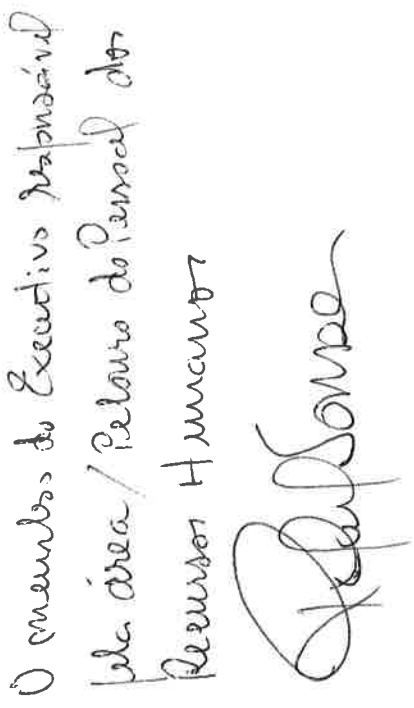 O membro do Executivo responsável
pela área / Pelouro do Pessoal dos
Recursos Humanos